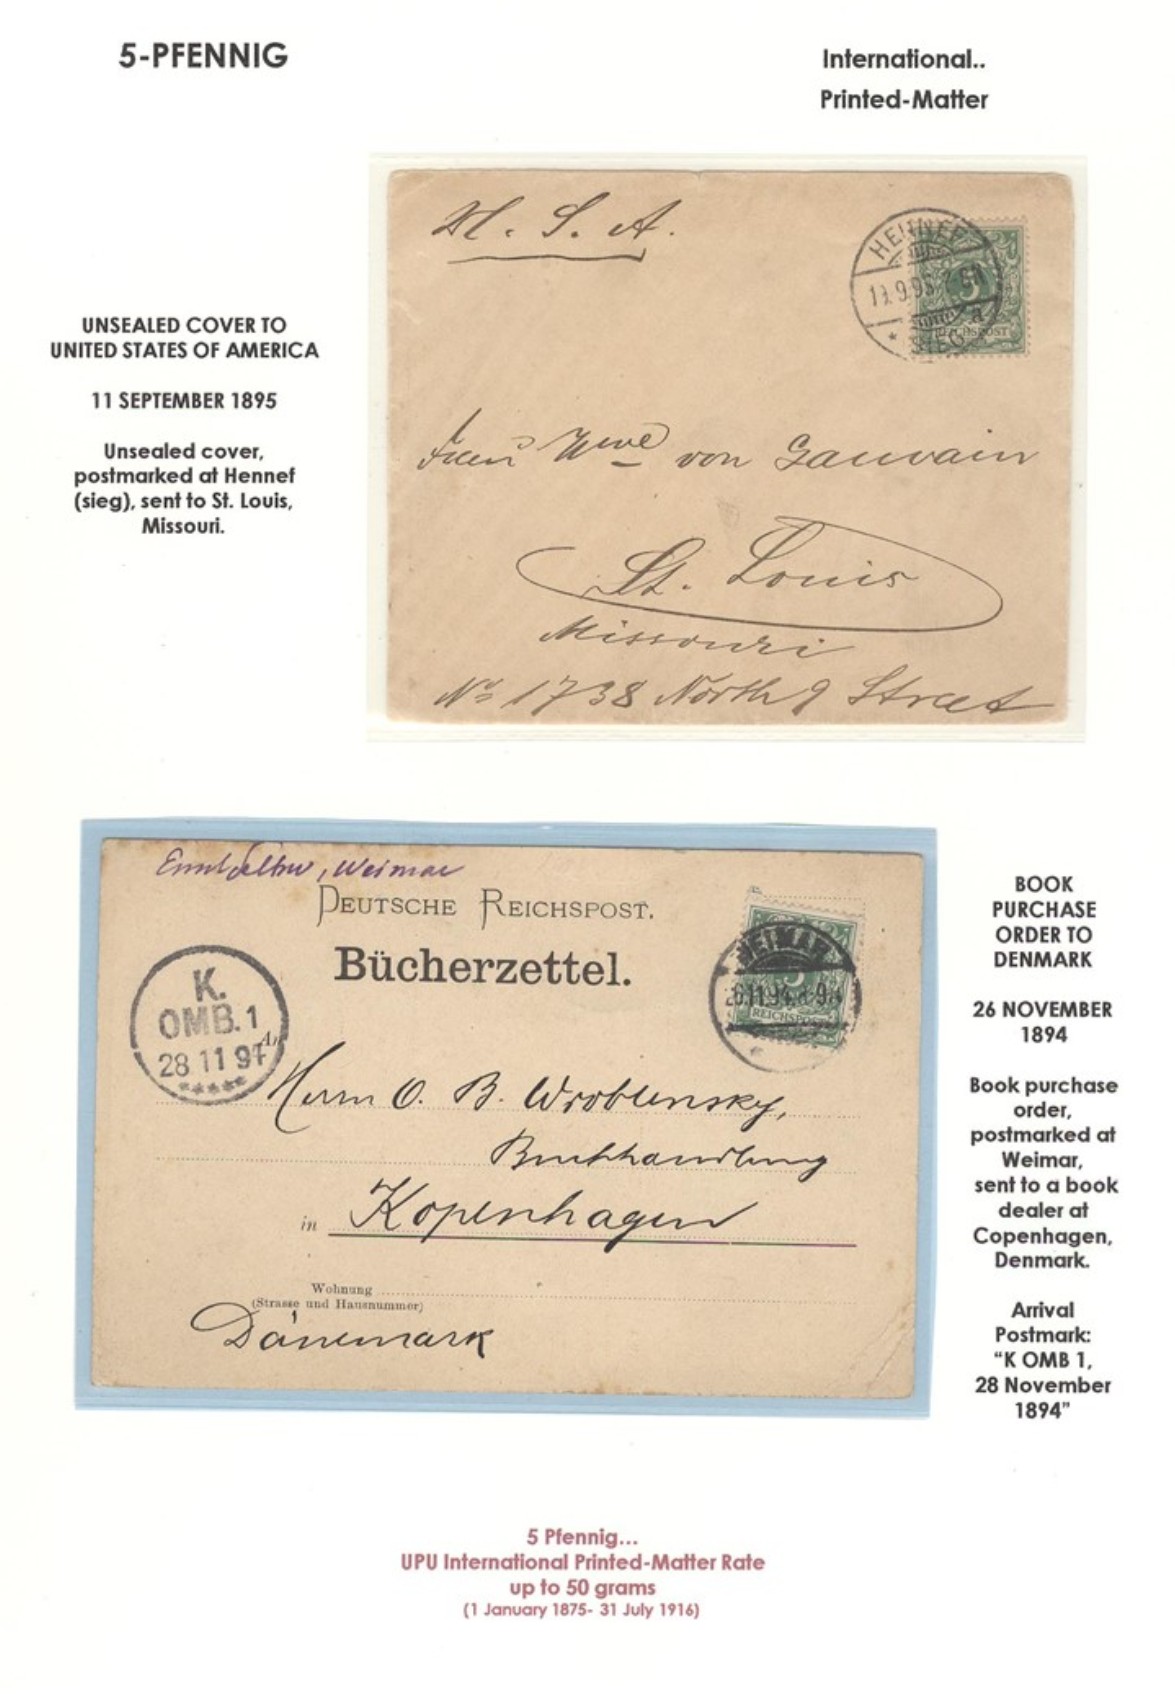 5-PFENNIG
International..
Printed-Matter
UNSEALED COVER TO
UNITED STATES OF AMERICA
11 SEPTEMBER 1895
Unsealed cover,
postmarked at Hennef
(sieg), sent to St. Louis,
Missouri.
U. S. A.
HENNEF
SIEG
a
REICHSPOST
5
Frau Wwe von Gauvain
St. Louis
Missouri
No 1738 North 9 Street
Weimar
DEUTSCHE REICHSPOST.
Bücherzettel.
K.
OMB. 1
28 11 94
WEIMAR
26.11.94. 8-9N
5
REICHSPOST
An
Herrn O. B. Wroblensky,
Buchhandlung
in Kopenhagen
Wohnung
(Strasse und Hausnummer)
Dänemark
BOOK
PURCHASE
ORDER TO
DENMARK
26 NOVEMBER
1894
Book purchase
order,
postmarked at
Weimar,
sent to a book
dealer at
Copenhagen,
Denmark.
Arrival
Postmark:
“K OMB 1,
28 November
1894”
5 Pfennig...
UPU International Printed-Matter Rate
up to 50 grams
(1 January 1875- 31 July 1916)